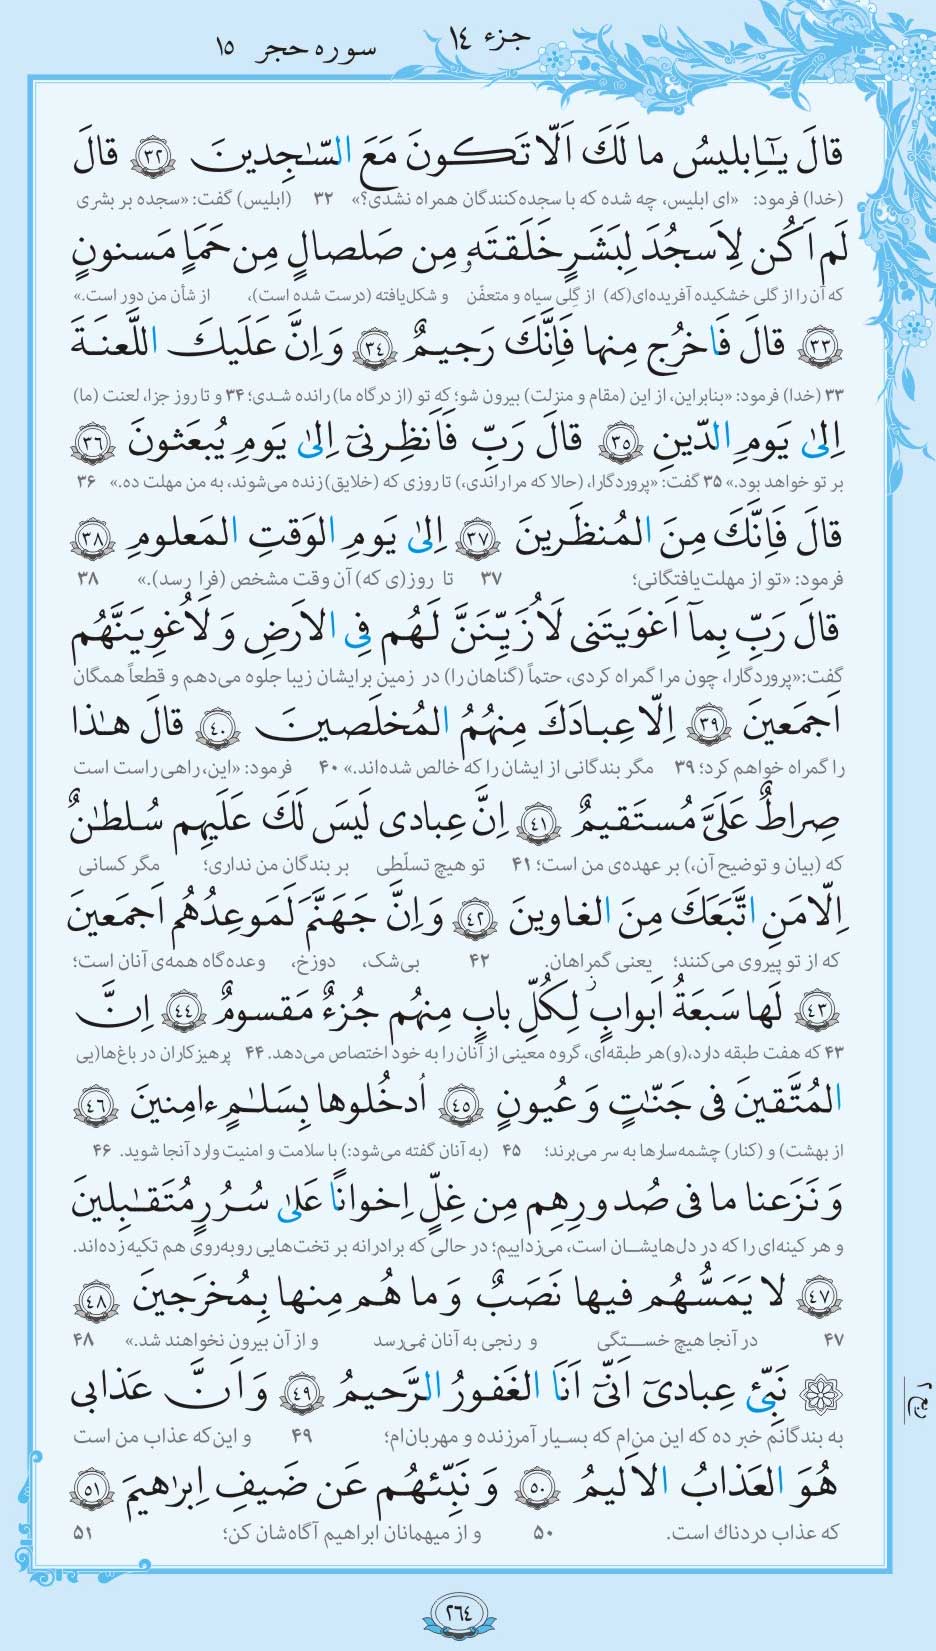 جزء ١٤
سوره حجر ١٥
قالَ يـٰٓاِبليسُ ما لَكَ اَلّا تَكونَ مَعَ السّـٰجِدينَ ٣٢ قالَ
(خدا) فرمود: «ای ابلیس، چه شده که با سجده‌کنندگان همراه نشدی؟» ۳۲ (ابلیس) گفت: «سجده بر بشری
لَم اَكُن لِاَسجُدَ لِبَشَرٍ خَلَقتَهٗ مِن صَلصالٍ مِن حَمَاٍ مَسنونٍ
که آن را از گلی خشکیده آفریده‌ای(که) از گِلی سیاه و متعفّن و شکل‌یافته (درست شده است)، از شأن من دور است.»
٣٣ قالَ فَاخرُج مِنها فَاِنَّكَ رَجيمٌ ٣٤ وَ اِنَّ عَلَيكَ اللَّعنَةَ
۳۳ (خدا) فرمود: «بنابراین، از این (مقام و منزلت) بیرون شو؛ که تو (از درگاه ما) رانده شدی؛ ۳۴ و تا روز جزا، لعنت (ما)
اِلىٰ يَومِ الدّينِ ٣٥ قالَ رَبِّ فَاَنظِرنىٓ اِلىٰ يَومِ يُبعَثونَ ٣٦
بر تو خواهد بود.» ۳۵ گفت: «پروردگارا، (حالا که مرا راندی،) تا روزی که (خلایق) زنده می‌شوند، به من مهلت ده.» ۳۶
قالَ فَاِنَّكَ مِنَ المُنظَرينَ ٣٧ اِلىٰ يَومِ الوَقتِ المَعلومِ ٣٨
فرمود: «تو از مهلت‌یافتگانی؛ ۳۷ تا روز(ی که) آن وقت مشخص (فرا رسد).» ۳۸
قالَ رَبِّ بِمآ اَغوَيتَنى لَاُزَيِّنَنَّ لَهُم فِى الاَرضِ وَ لَاُغوِيَنَّهُم
گفت:«پروردگارا، چون مرا گمراه کردی، حتماً (گناهان را) در زمین برایشان زیبا جلوه می‌دهم و قطعاً همگان
اَجمَعينَ ٣٩ اِلّا عِبادَكَ مِنهُمُ المُخلَصينَ ٤٠ قالَ هـٰذا
را گمراه خواهم کرد؛ ۳۹ مگر بندگانی از ایشان را که خالص شده‌اند.» ۴۰ فرمود: «این، راهی راست است
صِراطٌ عَلَىَّ مُستَقيمٌ ٤١ اِنَّ عِبادى لَيسَ لَكَ عَلَيهِم سُلطـٰنٌ
که (بیان و توضیح آن،) بر عهده‌ی من است؛ ۴۱ تو هیچ تسلّطی بر بندگان من نداری؛ مگر کسانی
اِلّا مَنِ اتَّبَعَكَ مِنَ الغاوينَ ٤٢ وَ اِنَّ جَهَنَّمَ لَمَوعِدُهُم اَجمَعينَ
که از تو پیروی می‌کنند؛ یعنی گمراهان. ۴۲ بی‌شک، دوزخ، وعده‌گاه همه‌ی آنان است؛
٤٣ لَها سَبعَةُ اَبوابٍ لِكُلِّ بابٍ مِنهُم جُزءٌ مَقسومٌ ٤٤ اِنَّ
۴۳ که هفت طبقه دارد،(و)هر طبقه‌ای، گروه معینی از آنان را به خود اختصاص می‌دهد. ۴۴ پرهیزکاران در باغ‌ها(یی
المُتَّقينَ فى جَنّـٰتٍ وَ عُيونٍ ٤٥ اُدخُلوها بِسَلـٰمٍ ءامِنينَ ٤٦
از بهشت) و (کنار) چشمه‌سارها به سر می‌برند؛ ۴۵ (به آنان گفته می‌شود:) با سلامت و امنیت وارد آنجا شوید. ۴۶
وَ نَزَعنا ما فى صُدورِهِم مِن غِلٍّ اِخوانًا عَلىٰ سُرُرٍ مُتَقـٰبِلينَ
و هر کینه‌ای را که در دل‌هایشان است، می‌زداییم؛ در حالی که برادرانه بر تخت‌هایی روبه‌روی هم تکیه زده‌اند.
٤٧ لا يَمَسُّهُم فيها نَصَبٌ وَ ما هُم مِنها بِمُخرَجينَ ٤٨
۴۷ در آنجا هیچ خستگی و رنجی به آنان نمی‌رسد و از آن بیرون نخواهند شد.» ۴۸
نَبِّئ عِبادىٓ اَنّىٓ اَنَا الغَفورُ الرَّحيمُ ٤٩ وَ اَنَّ عَذابى
به بندگانم خبر ده که این من‌ام که بسیار آمرزنده و مهربان‌ام؛ ۴۹ و این‌که عذاب من است
هُوَ العَذابُ الاَليمُ ٥٠ وَ نَبِّئهُم عَن ضَيفِ اِبرٰهيمَ ٥١
که عذاب دردناک است. ۵۰ و از میهمانان ابراهیم آگاه‌شان کن؛ ۵۱
٢٦٤